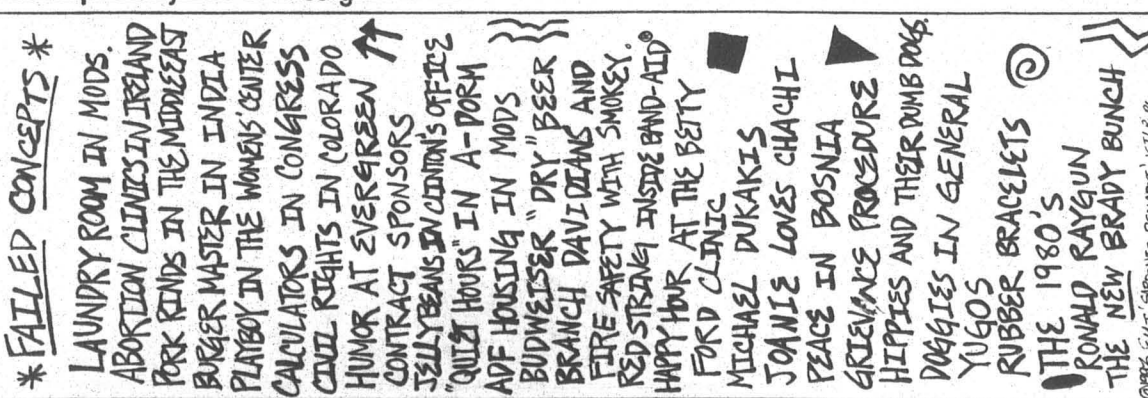 * FAILED CONCEPTS *
LAUNDRY ROOM IN MODS.
ABORTION CLINICS IN IRELAND
PORK RINDS IN THE MIDDLE EAST
BURGER MASTER IN INDIA
PLAYBOY IN THE WOMENS' CENTER
CALCULATORS IN CONGRESS
CIVIL RIGHTS IN COLORADO
HUMOR AT EVERGREEN
CONTRACT SPONSORS
JELLYBEANS IN CLINTON'S OFFICE
"QUIET HOURS" IN A-DORM
ADF HOUSING IN MODS
BUDWEISER "DRY" BEER
BRANCH DAVIDIANS AND
FIRE SAFETY WITH SMOKEY.
RED STRING INSIDE BAND-AID®
HAPPY HOUR AT THE BETTY
FORD CLINIC
MICHAEL DUKAKIS
JOANIE LOVES CHACHI
PEACE IN BOSNIA
GRIEVENCE PROCEDURE
HIPPIES AND THEIR DUMB DOGS.
DOGGIES IN GENERAL
YUGOS
RUBBER BRACELETS
THE 1980'S
RONALD RAYGUN
THE NEW BRADY BUNCH